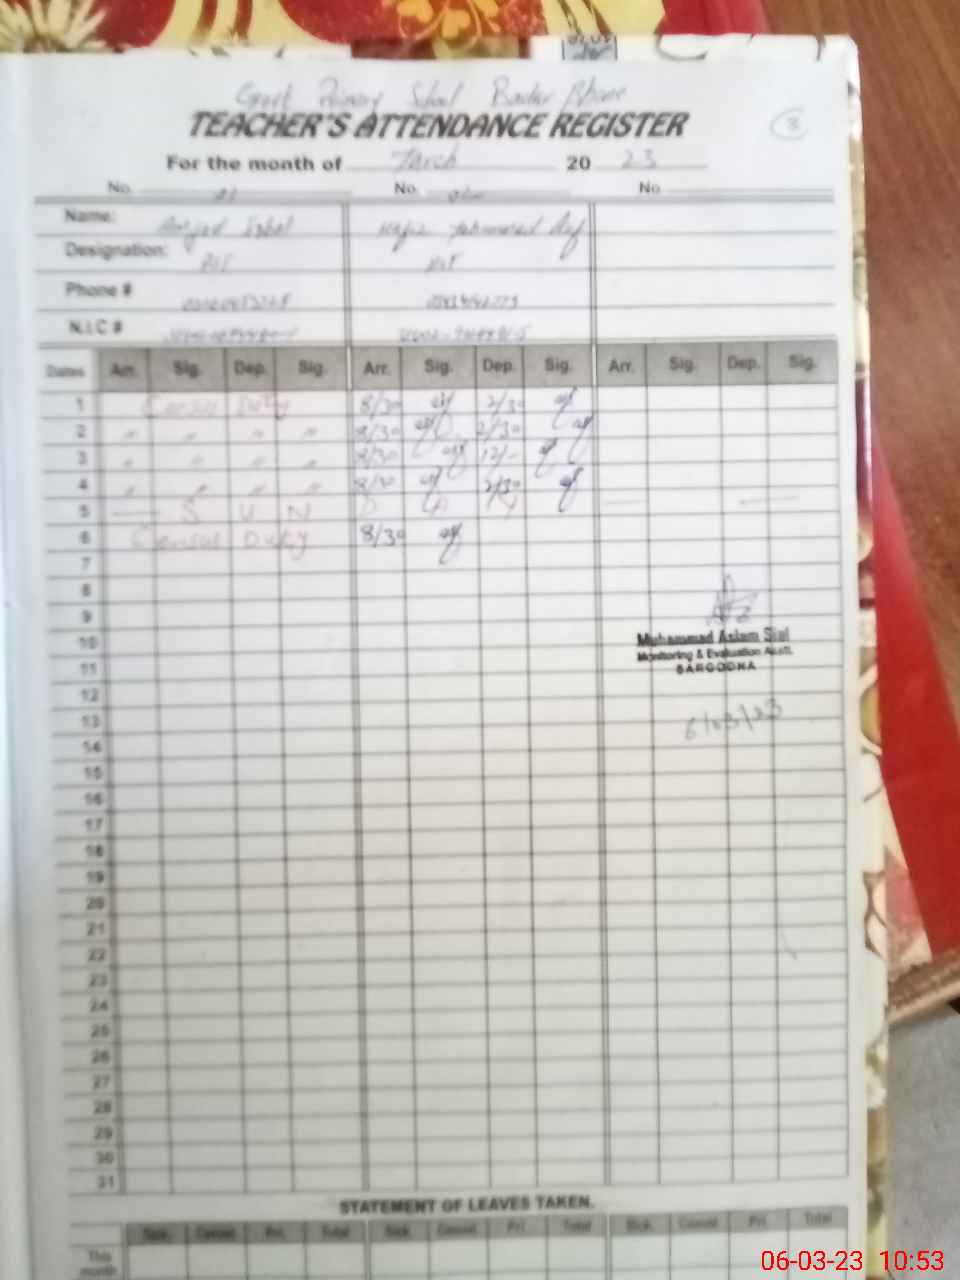 Govt Primary School
TEACHER'S ATTENDANCE REGISTER
For the month of March 20 23
No. No. No.
Name: Amjad Iqbal Hafiz Muhammad
Designation: PST PST
Phone #
N.I.C #
Dates Arr. Sig. Dep. Sig. Arr. Sig. Dep. Sig. Arr. Sig. Dep. Sig.
1 Census Duty 8/30 2/30
2 " " " " 8/30 2/30
3 " " " " 8/30 12/-
4 " " " " 8/30 2/30
5 S U N D A Y
6 Census Duty 8/30
7
8
9
10 Muhammad Aslam Sial
Monitoring & Evaluation Asstt.
11 SARGODHA
12
13 6/03/23
14
15
16
17
18
19
20
21
22
23
24
25
26
27
28
29
30
31
STATEMENT OF LEAVES TAKEN.
Sick. Casual Pri. Total Sick. Casual Pri. Total Sick. Casual Pri. Total
This
month
06-03-23 10:53